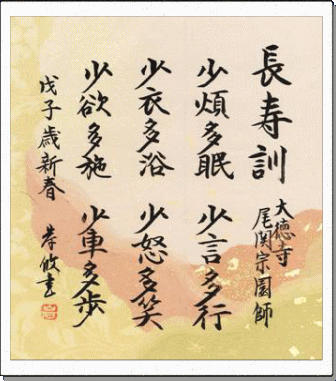 長寿訓
大徳寺
尾関宗園師
少煩多眠 少言多行
少衣多浴 少怒多笑
少欲多施 少車多歩
戊子歳新春
書